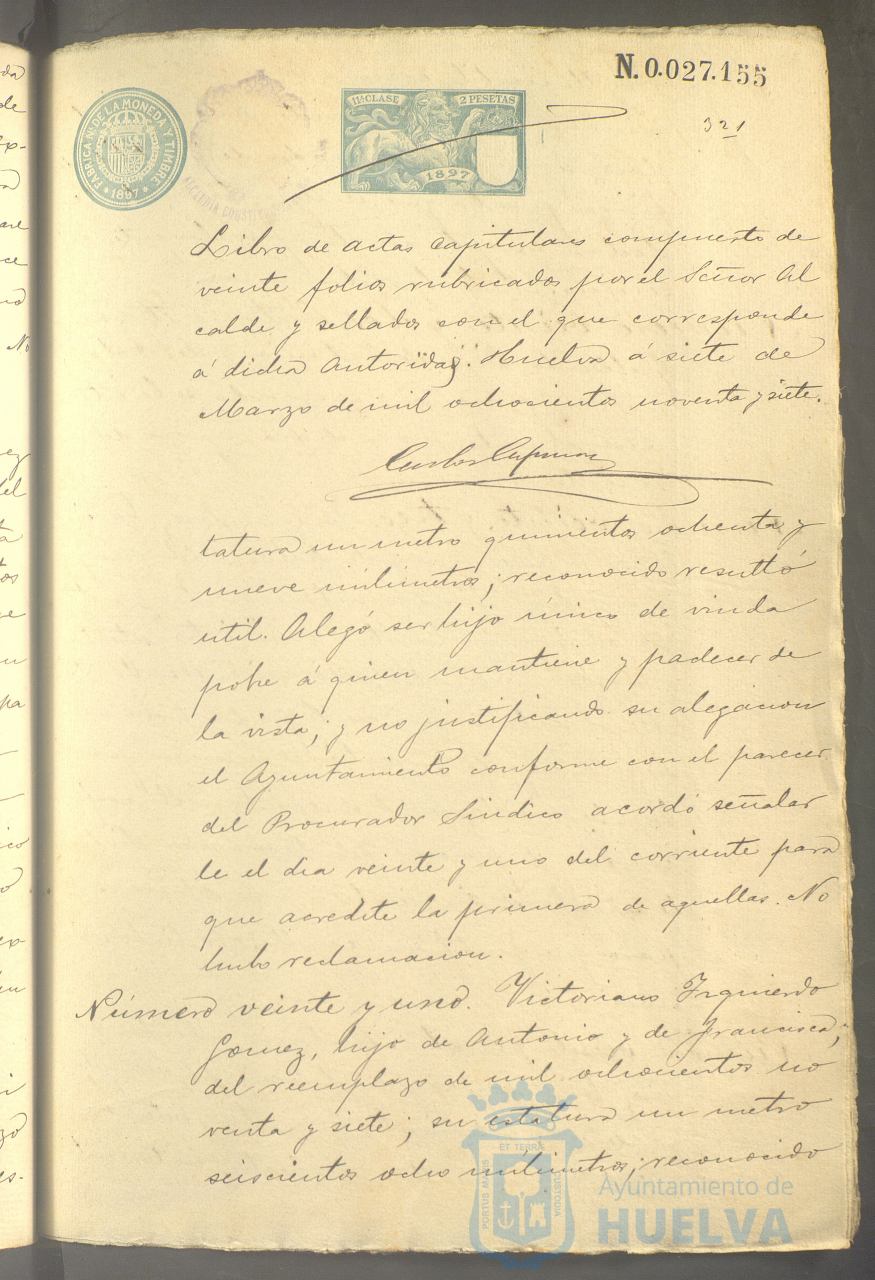 N. 0.027.155
321
FABRICA Nal DE LA MONEDA Y TIMBRE
1897
11ª CLASE
2 PESETAS
1897
ALCALDIA CONSTI
Libro de actas capitulares compuesto de
veinte folios rubricados por el Señor Al
calde y sellados con el que corresponde
á dicha Autoridad. Huelva á siete de
Marzo de mil ochocientos noventa y siete.
tatura un metro quinientos ochenta y
nueve milimetros; reconocido resultó
util. Alegó ser hijo único de viuda
pobre á quien mantiene y padecer de
la vista; y no justificando su alegacion
el Ayuntamiento conforme con el parecer
del Procurador Sindico acordó señalar
le el dia veinte y uno del corriente para
que acredite la primera de aquellas. No
hubo reclamacion.
Número veinte y uno. Victoriano Izquierdo
Gomez, hijo de Antonio y de Francisca;
del reemplazo de mil ochocientos no
venta y siete; su estatura un metro
seiscientos ocho milimetros; reconocido
PORTUS MARIS
ET TERRÆ
CUSTODIA
Ayuntamiento de
HUELVA